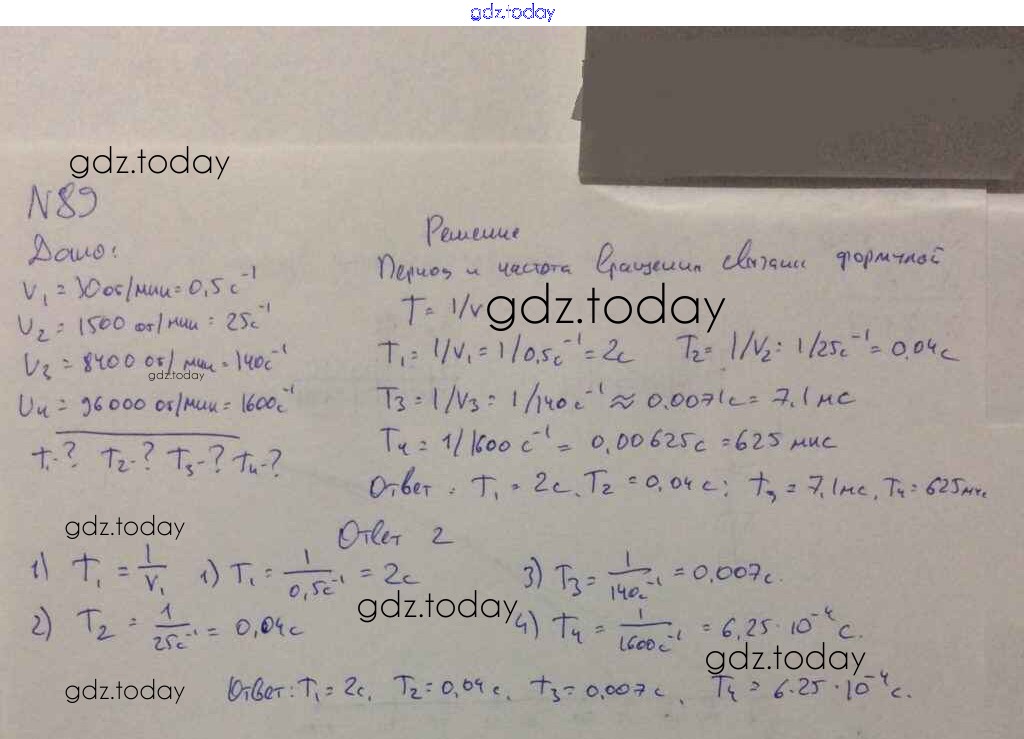 gdz.today
gdz.today
N89
Дано:
ν₁ = 30 об/мин = 0,5 с⁻¹
ν₂ = 1500 об/мин = 25с⁻¹
ν₃ = 8400 об/мин = 140с⁻¹
gdz.today
ν₄ = 96000 об/мин = 1600с⁻¹
T₁-? T₂-? T₃-? T₄-?
Решение
Период и частота вращения связаны формулой
T = 1/ν
gdz.today
T₁ = 1/ν₁ = 1/0,5с⁻¹ = 2с T₂ = 1/ν₂ = 1/25с⁻¹ = 0,04с
T₃ = 1/ν₃ = 1/140с⁻¹ ≈ 0,0071с = 7,1мс
T₄ = 1/1600с⁻¹ = 0,00625с = 625 мкс
Ответ: T₁ = 2с, T₂ = 0,04с; T₃ = 7,1мс, T₄ = 625мкс
gdz.today
Ответ 2
1) T₁ = 1/ν₁ 1) T₁ = 1/0,5с⁻¹ = 2с 3) T₃ = 1/140с⁻¹ = 0,007с.
gdz.today
2) T₂ = 1/25с⁻¹ = 0,04с 4) T₄ = 1/1600с⁻¹ = 6,25·10⁻⁴ с.
gdz.today
gdz.today
Ответ: T₁ = 2с, T₂ = 0,04с, T₃ = 0,007с, T₄ = 6.25·10⁻⁴с.